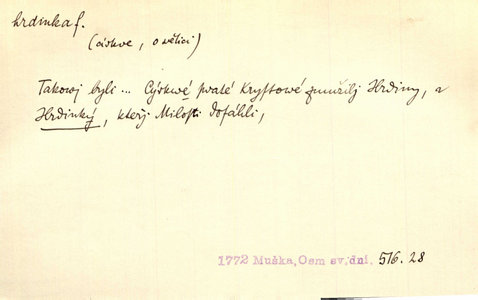 hrdinka f.
(církve, o světici)
Takowj byli ... Cýrkwé swaté Kryſtowé zmužilj Hrdiny, a
Hrdinký, kteřj Miloſti doſáhli,
1772 Muška, Osm sv. dní. 516. 28